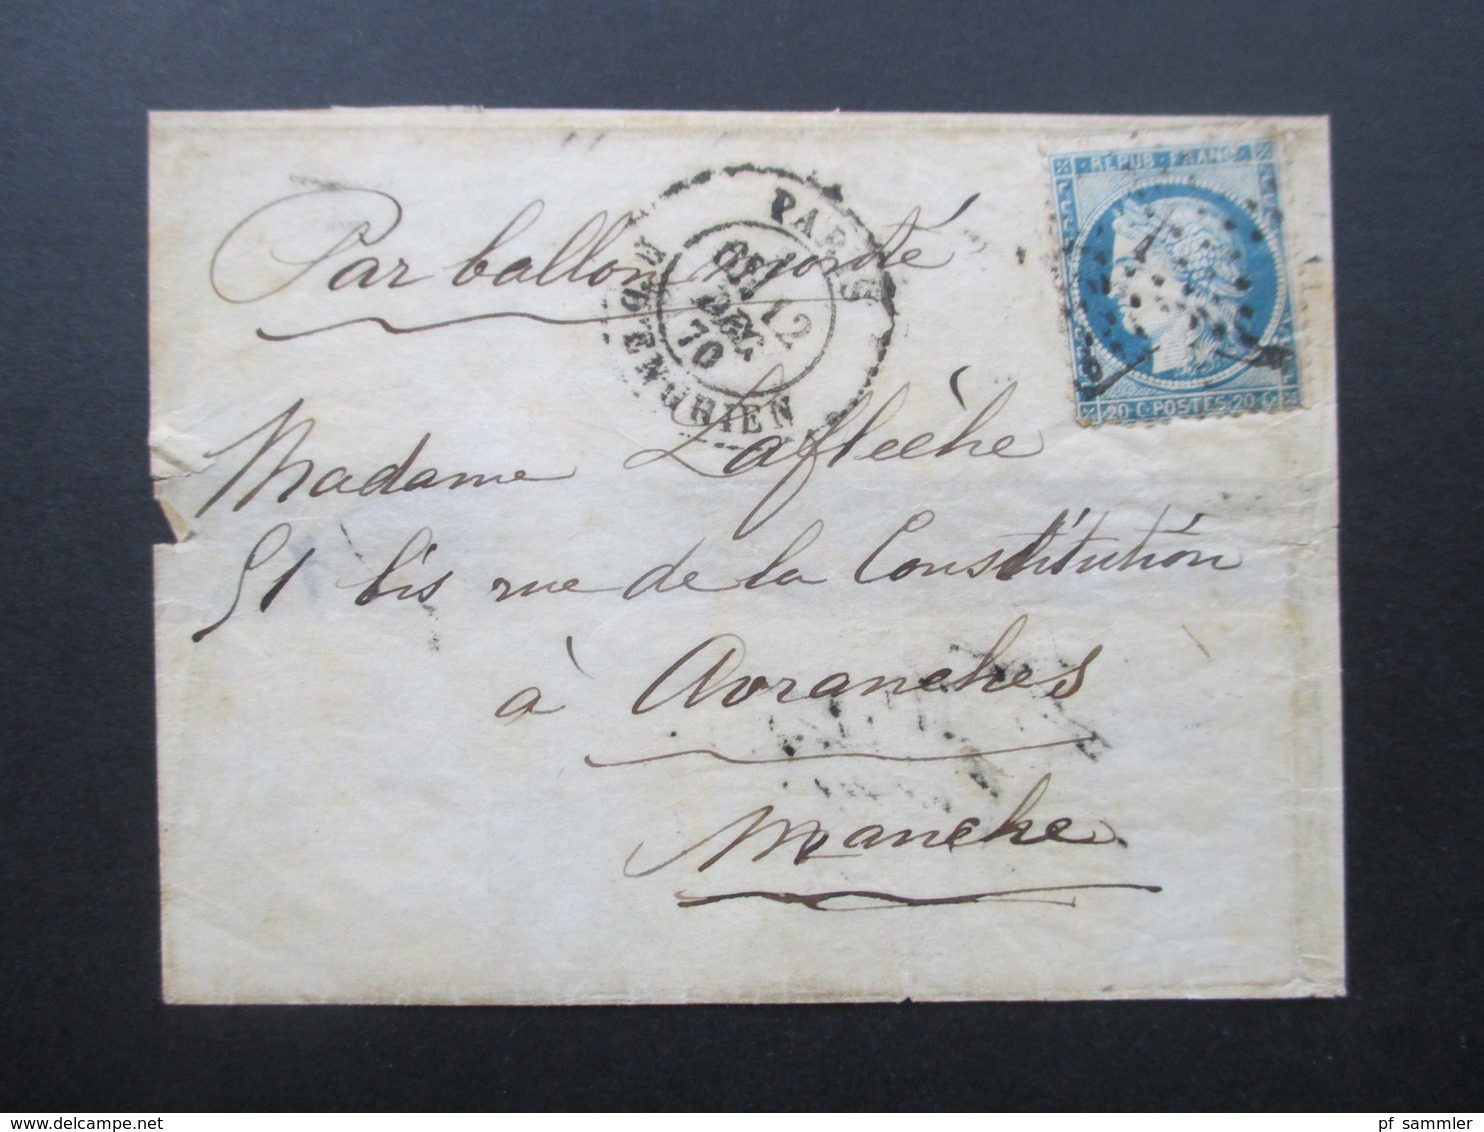 Par ballon monté
PARIS
R. D'ENGHIEN
6E
12
DEC.
70
REPUB. FRANC.
20 C. POSTES. 20 C.
Madame Laflèche
51 bis rue de la Constitution
à Avranches
Manche
www.delcampe.net
pf_sammler